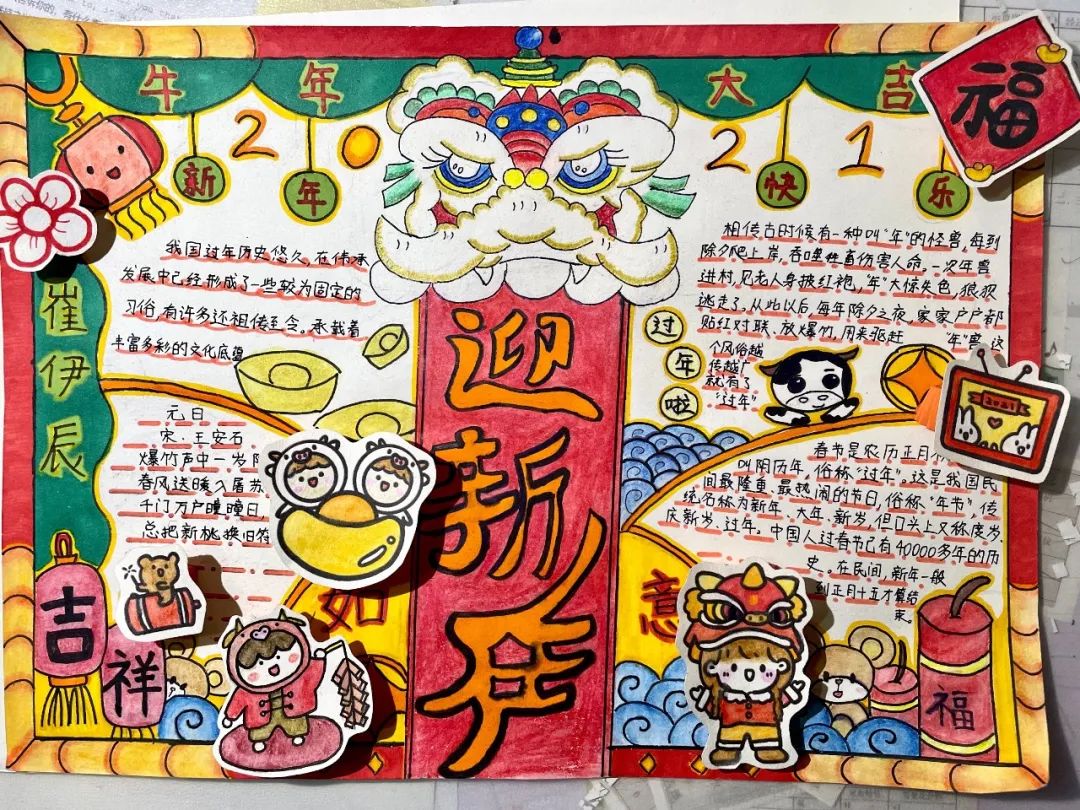 牛年大吉
2021
新年快乐
福
崔伊辰
我国过年历史悠久,在传承
发展中已经形成了一些较为固定的
习俗,有许多还祖传至今。承载着
丰富多彩的文化底蕴
元日
宋.王安石.
爆竹声中一岁
春风送暖入屠苏
千门万户曈曈日,
总把新桃换旧符
迎新年
相传古时候有一种叫"年"的怪兽,每到
除夕爬上岸,吞噬牲畜伤害人命,一次年兽
进村,见老人身披红袍,"年"大惊失色,狼狈
逃走了,从此以后,每年除夕之夜,家家户户都
贴红对联、放爆竹,用来驱赶"年"兽,这
个风俗越
传越广
就有了
"过年"
过年啦
2021
春节是农历正月
叫阴历年,俗称"过年"。这是我国民
间最隆重、最热闹的节日,俗称"年节",传
统名称为新年、大年、新岁,但口头上又称度岁、
庆新岁、过年。中国人过春节已有40000多年的历
史。在民间,新年一般
到正月十五才算结
束。
吉祥如意
福